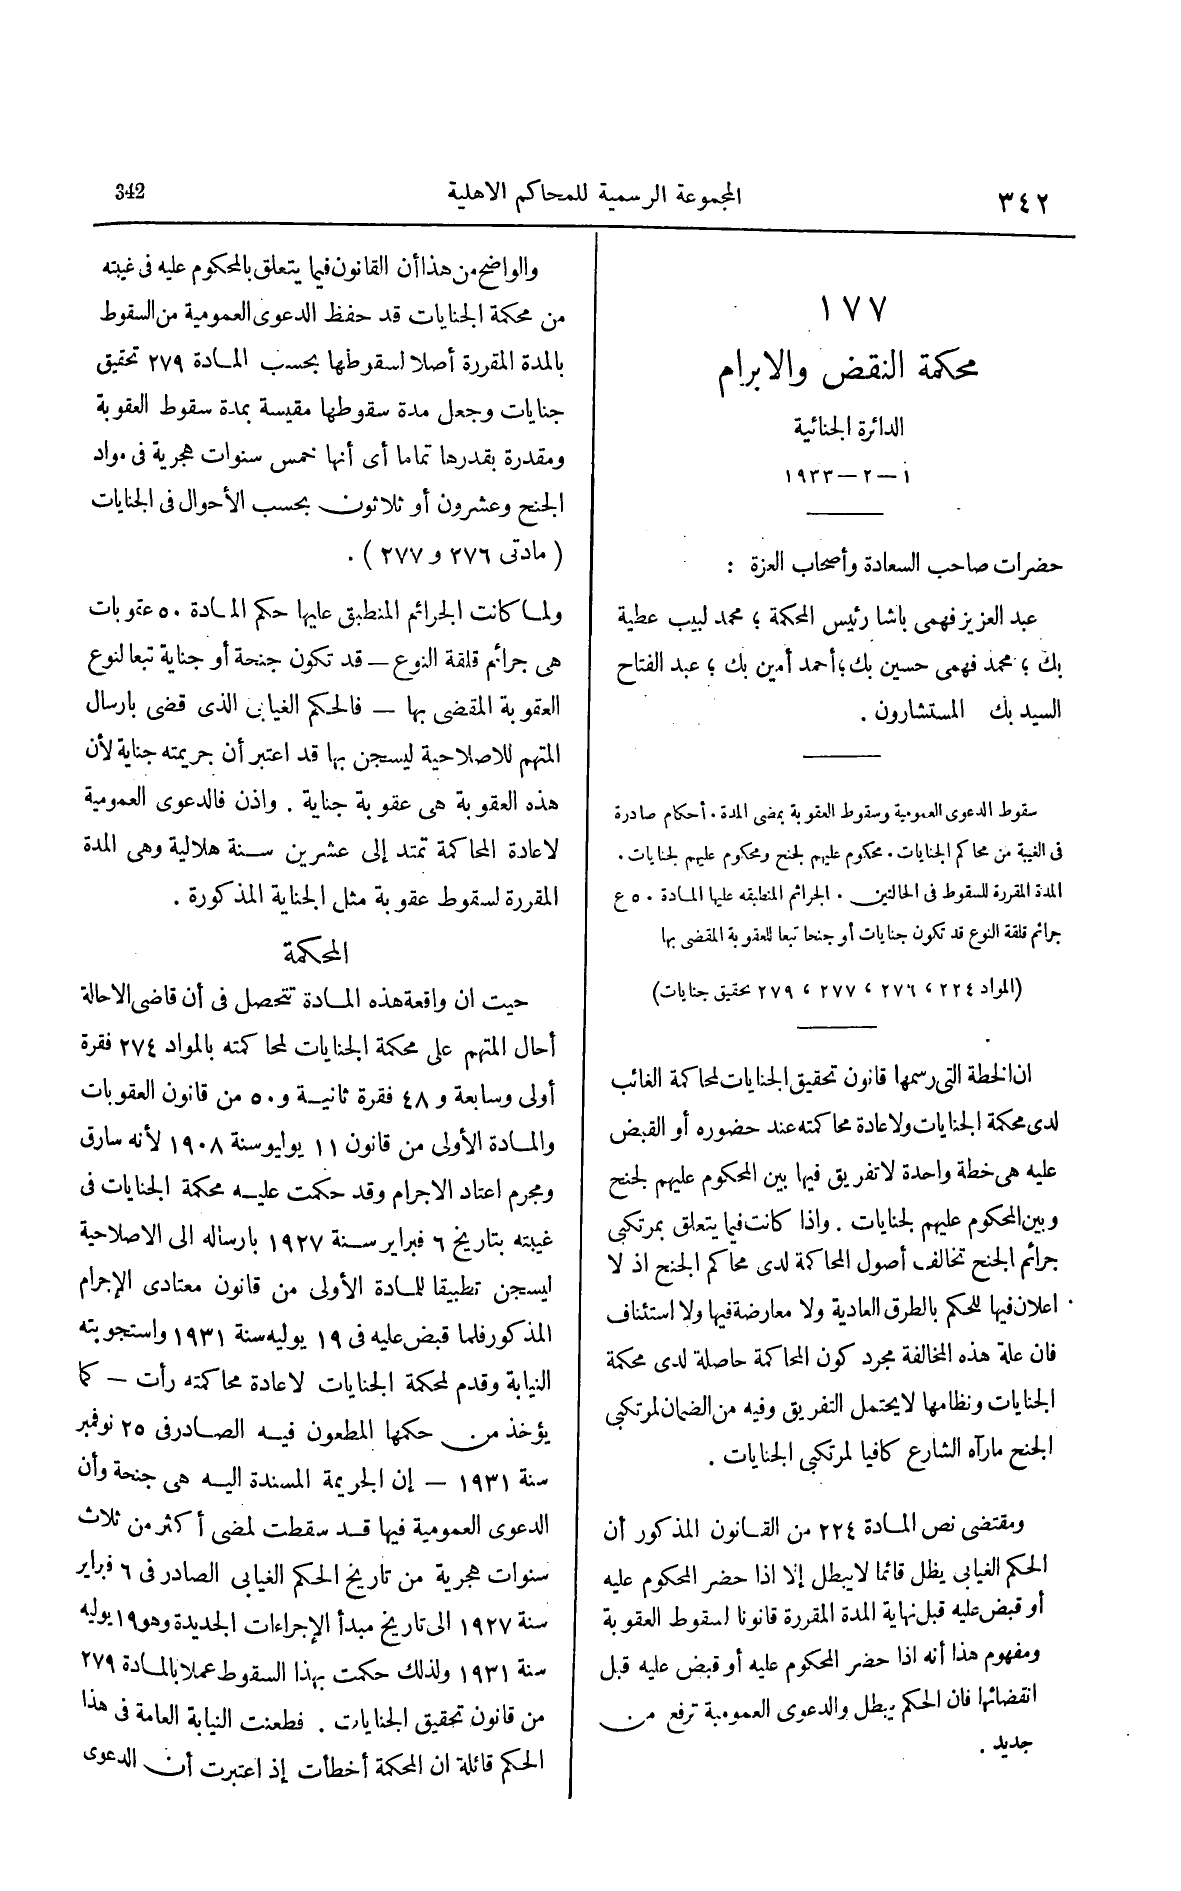 ٣٤٢
المجموعة الرسمية للمحاكم الاهلية
342
١٧٧
محكمة النقض والابرام
الدائرة الجنائية
١ – ٢ – ١٩٣٣
حضرات صاحب السعادة وأصحاب العزة :
عبد العزيز فهمى باشا رئيس المحكمة ؛ محمد لبيب عطية
بك ؛ محمد فهمى حسين بك ؛ أحمد أمين بك ؛ عبد الفتاح
السيد بك المستشارون .
سقوط الدعوى العمومية وسقوط العقوبة بمضى المدة . أحكام صادرة
فى الغيبة من محاكم الجنايات . محكوم عليهم لجنح ومحكوم عليهم لجنايات .
المدة المقررة للسقوط فى الحالتين . الجرائم المنطبقه عليها المادة ٥٠ ع
جرائم قلقة النوع قد تكون جنايات أو جنحا تبعا للعقوبة المقضى بها
(المواد ٢٢٤ ، ٢٧٦ ، ٢٧٧ ، ٢٧٩ تحقيق جنايات)
ان الخطة التى رسمها قانون تحقيق الجنايات لمحاكمة الغائب
لدى محكمة الجنايات ولاعادة محاكمته عند حضوره أو القبض
عليه هى خطة واحدة لا تفريق فيها بين المحكوم عليهم لجنح
وبين المحكوم عليهم لجنايات . واذا كانت فيما يتعلق بمرتكبي
جرائم الجنح تخالف أصول المحاكمة لدى محاكم الجنح اذ لا
اعلان فيها للحكم بالطرق العادية ولا معارضة فيها ولا استئناف
فان علة هذه المخالفة مجرد كون المحاكمة حاصلة لدى محكمة
الجنايات ونظامها لا يحتمل التفريق وفيه من الضمان لمرتكبي
الجنح مارآه الشارع كافيا لمرتكبي الجنايات .
ومقتضى نص المادة ٢٢٤ من القانون المذكور أن
الحكم الغيابى يظل قائما لا يبطل إلا اذا حضر المحكوم عليه
أو قبض عليه قبل نهاية المدة المقررة قانونا لسقوط العقوبة
ومفهوم هذا أنه اذا حضر المحكوم عليه أو قبض عليه قبل
انقضائها فان الحكم يبطل والدعوى العمومية ترفع من
جديد .
والواضح من هذا أن القانون فيما يتعلق بالمحكوم عليه فى غيبته
من محكمة الجنايات قد حفظ الدعوى العمومية من السقوط
بالمدة المقررة أصلا لسقوطها بحسب المادة ٢٧٩ تحقيق
جنايات وجعل مدة سقوطها مقيسة بمدة سقوط العقوبة
ومقدرة بقدرها تماما أى أنها خمس سنوات هجرية فى مواد
الجنح وعشرون أو ثلاثون بحسب الأحوال فى الجنايات
( مادتى ٢٧٦ و ٢٧٧ ) .
ولما كانت الجرائم المنطبق عليها حكم المادة ٥٠ عقوبات
هى جرائم قلقة النوع – قد تكون جنحة أو جناية تبعا لنوع
العقوبة المقضى بها – فالحكم الغيابى الذى قضى بارسال
المتهم للاصلاحية ليسجن بها قد اعتبر أن جريمته جناية لأن
هذه العقوبة هى عقوبة جناية . واذن فالدعوى العمومية
لاعادة المحاكمة تمتد إلى عشرين سنة هلالية وهى المدة
المقررة لسقوط عقوبة مثل الجناية المذكورة .
المحكمة
حيت ان واقعة هذه المادة تتحصل فى أن قاضى الاحالة
أحال المتهم على محكمة الجنايات لمحاكمته بالمواد ٢٧٤ فقرة
أولى وسابعة و ٤٨ فقرة ثانية و ٥٠ من قانون العقوبات
والمادة الأولى من قانون ١١ يوليو سنة ١٩٠٨ لأنه سارق
ومجرم اعتاد الاجرام وقد حكمت عليه محكمة الجنايات فى
غيبته بتاريخ ٦ فبراير سنة ١٩٢٧ بارساله الى الاصلاحية
ليسجن تطبيقا للمادة الأولى من قانون معتادى الإجرام
المذكور فلما قبض عليه فى ١٩ يوليه سنة ١٩٣١ واستجوبته
النيابة وقدم لمحكمة الجنايات لاعادة محاكمته رأت – كما
يؤخذ من حكمها المطعون فيه الصادر فى ٢٥ نوفمبر
سنة ١٩٣١ – إن الجريمة المسندة اليه هى جنحة وأن
الدعوى العمومية فيها قد سقطت لمضى أكثر من ثلاث
سنوات هجرية من تاريخ الحكم الغيابى الصادر فى ٦ فبراير
سنة ١٩٢٧ الى تاريخ مبدأ الإجراءات الجديدة وهو ١٩ يوليه
سنة ١٩٣١ ولذلك حكمت بهذا السقوط عملا بالمادة ٢٧٩
من قانون تحقيق الجنايات . فطعنت النيابة العامة فى هذا
الحكم قائلة ان المحكمة أخطأت إذ اعتبرت أن الدعوى